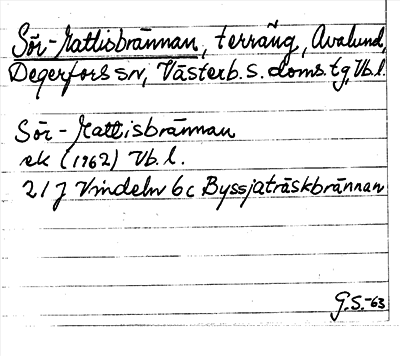 Sör-Mattisbrännan, terräng, Avalund,
Degerfors sn, Västerb. s. doms. tg, Vb. l.
Sör-Mattisbrännan
ek (1962) Vb. l.
21 J Vindeln 6 c Byssjaträskbrännan
G.S.-63